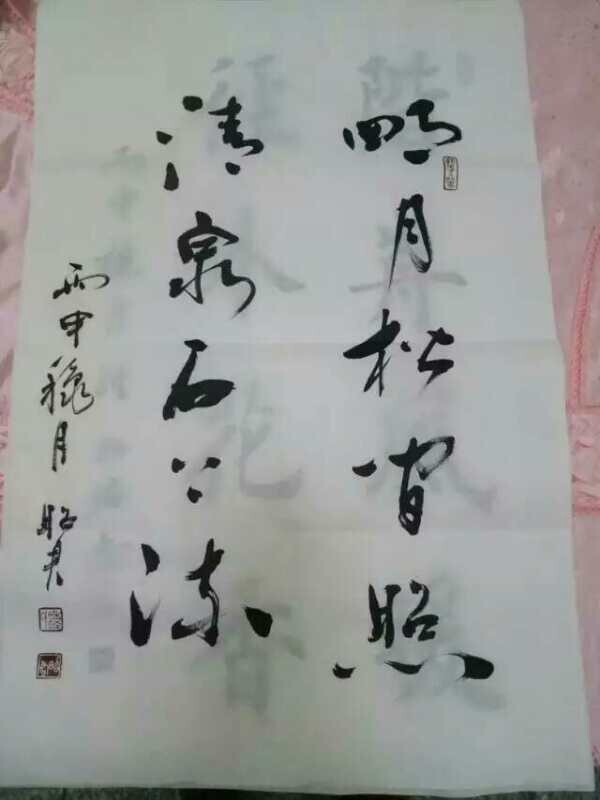 明月松间照
清泉石上流
丙申穐月 昭君